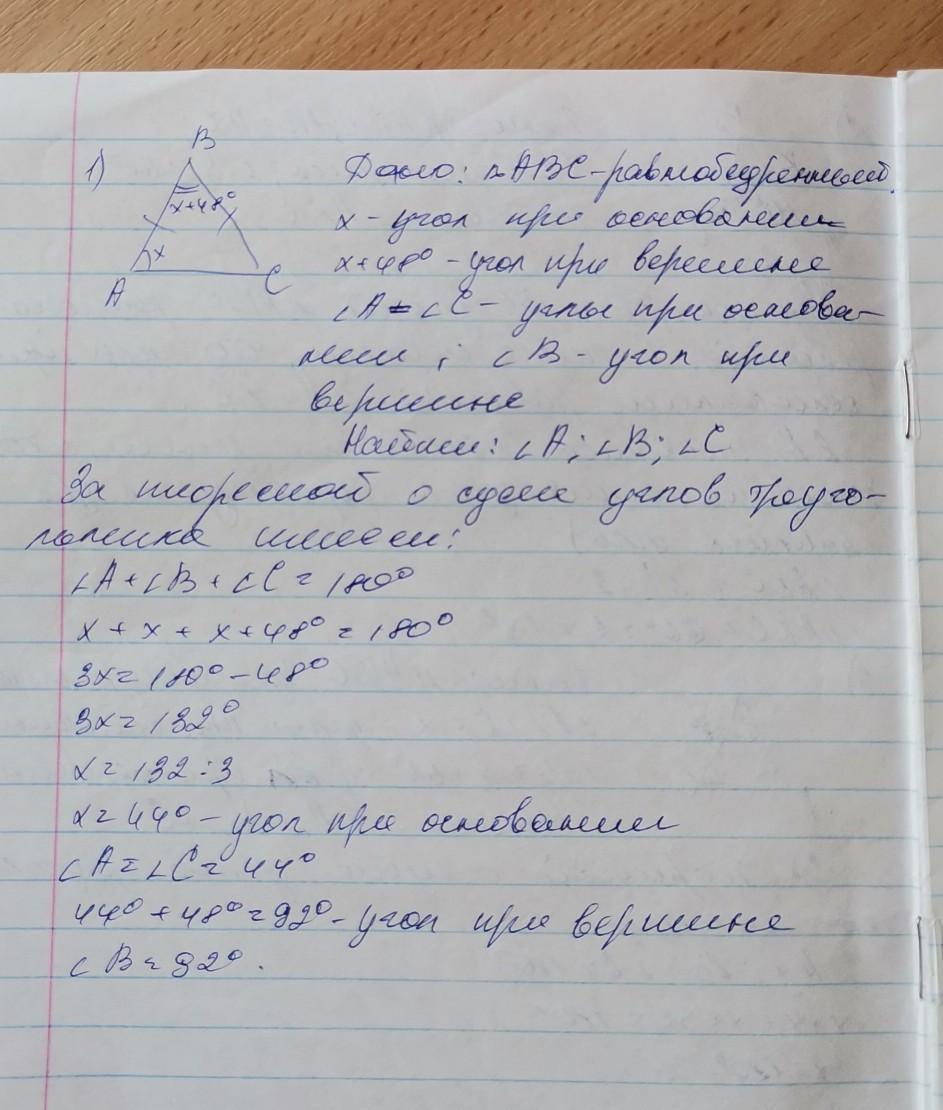 1)
B
x+48°
x
A
C
Дано: △ABC-равнобедренный.
x - угол при основании
x+48° - угол при вершине
∠A = ∠C - углы при основа-
нии ; ∠B - угол при
вершине
Найти: ∠A; ∠B; ∠C
За теоремой о суме углов треуго-
льника имеем:
∠A + ∠B + ∠C = 180°
x + x + x + 48° = 180°
3x = 180° - 48°
3x = 132°
x = 132 : 3
x = 44° - угол при основании
∠A = ∠C = 44°
44° + 48° = 92° - угол при вершине
∠B = 92°.